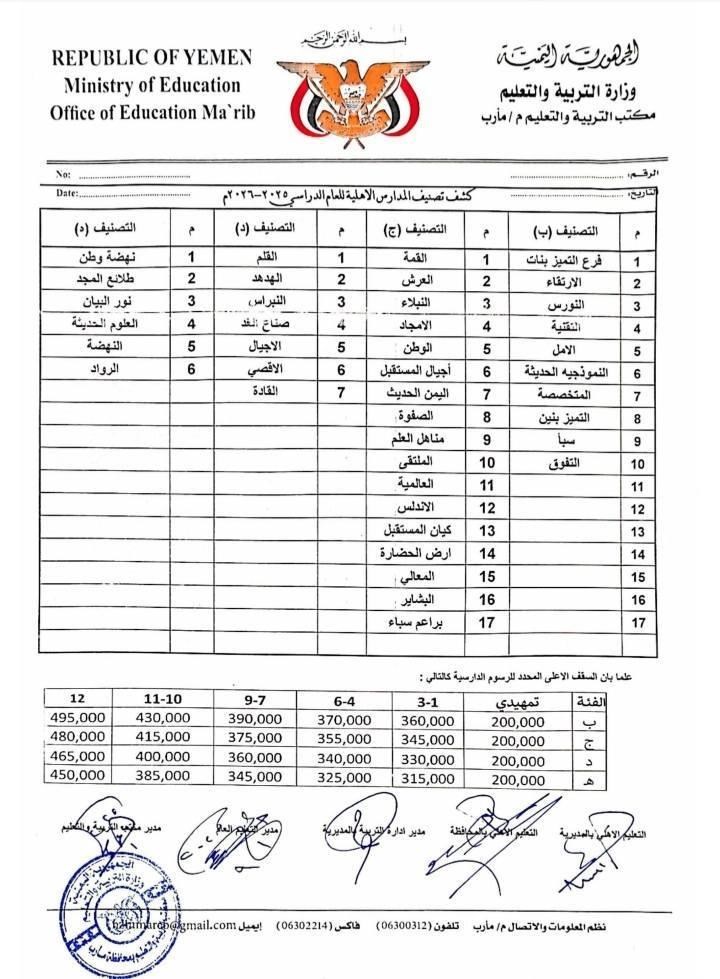 بسم الله الرحمن الرحيم
REPUBLIC OF YEMEN
Ministry of Education
Office of Education Ma`rib
الجمهورية اليمنية
وزارة التربية والتعليم
مكتب التربية والتعليم م/مأرب
No:
Date:
الرقم:
التاريخ:
كشف تصنيف المدارس الاهلية للعام الدراسي ٢٠٢٥-٢٠٢٦م
م التصنيف (ب) م التصنيف (ج) م التصنيف (د) م التصنيف (ه)
1 فرع التميز بنات 1 القمة 1 القلم 1 نهضة وطن
2 الارتقاء 2 العرش 2 الهدهد 2 طلائع المجد
3 النورس 3 النبلاء 3 النبراس 3 نور البيان
4 التقنية 4 الامجاد 4 صناع الغد 4 العلوم الحديثة
5 الامل 5 الوطن 5 الاجيال 5 النهضة
6 النموذجيه الحديثة 6 أجيال المستقبل 6 الاقصي 6 الرواد
7 المتخصصة 7 اليمن الحديث 7 القادة
8 التميز بنين 8 الصفوة
9 سبأ 9 مناهل العلم
10 التفوق 10 الملتقى
11 11 العالمية
12 12 الاندلس
13 13 كيان المستقبل
14 14 ارض الحضارة
15 15 المعالي
16 16 البشاير
17 17 براعم سباء
علما بان السقف الاعلى المحدد للرسوم الدارسية كالتالي :
الفئة تمهيدي 3-1 6-4 9-7 11-10 12
ب 200,000 360,000 370,000 390,000 430,000 495,000
ج 200,000 345,000 355,000 375,000 415,000 480,000
د 200,000 330,000 340,000 360,000 400,000 465,000
هـ 200,000 315,000 325,000 345,000 385,000 450,000
التعليم الاهلي بالمديرية التعليم الاهلي بالمحافظة مدير ادارة التربية بالمديرية مدير التعليم العام مدير مكتب التربية والتعليم
الجمهورية اليمنية
وزارة التربية والتعليم
نظم المعلومات والاتصال م/مأرب تلفون (06300312) فاكس (06302214) إيميل @gmail.com